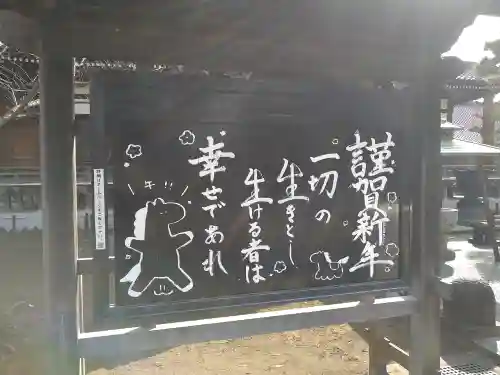 謹賀新年
一切の
生きとし
生ける者は
幸せであれ